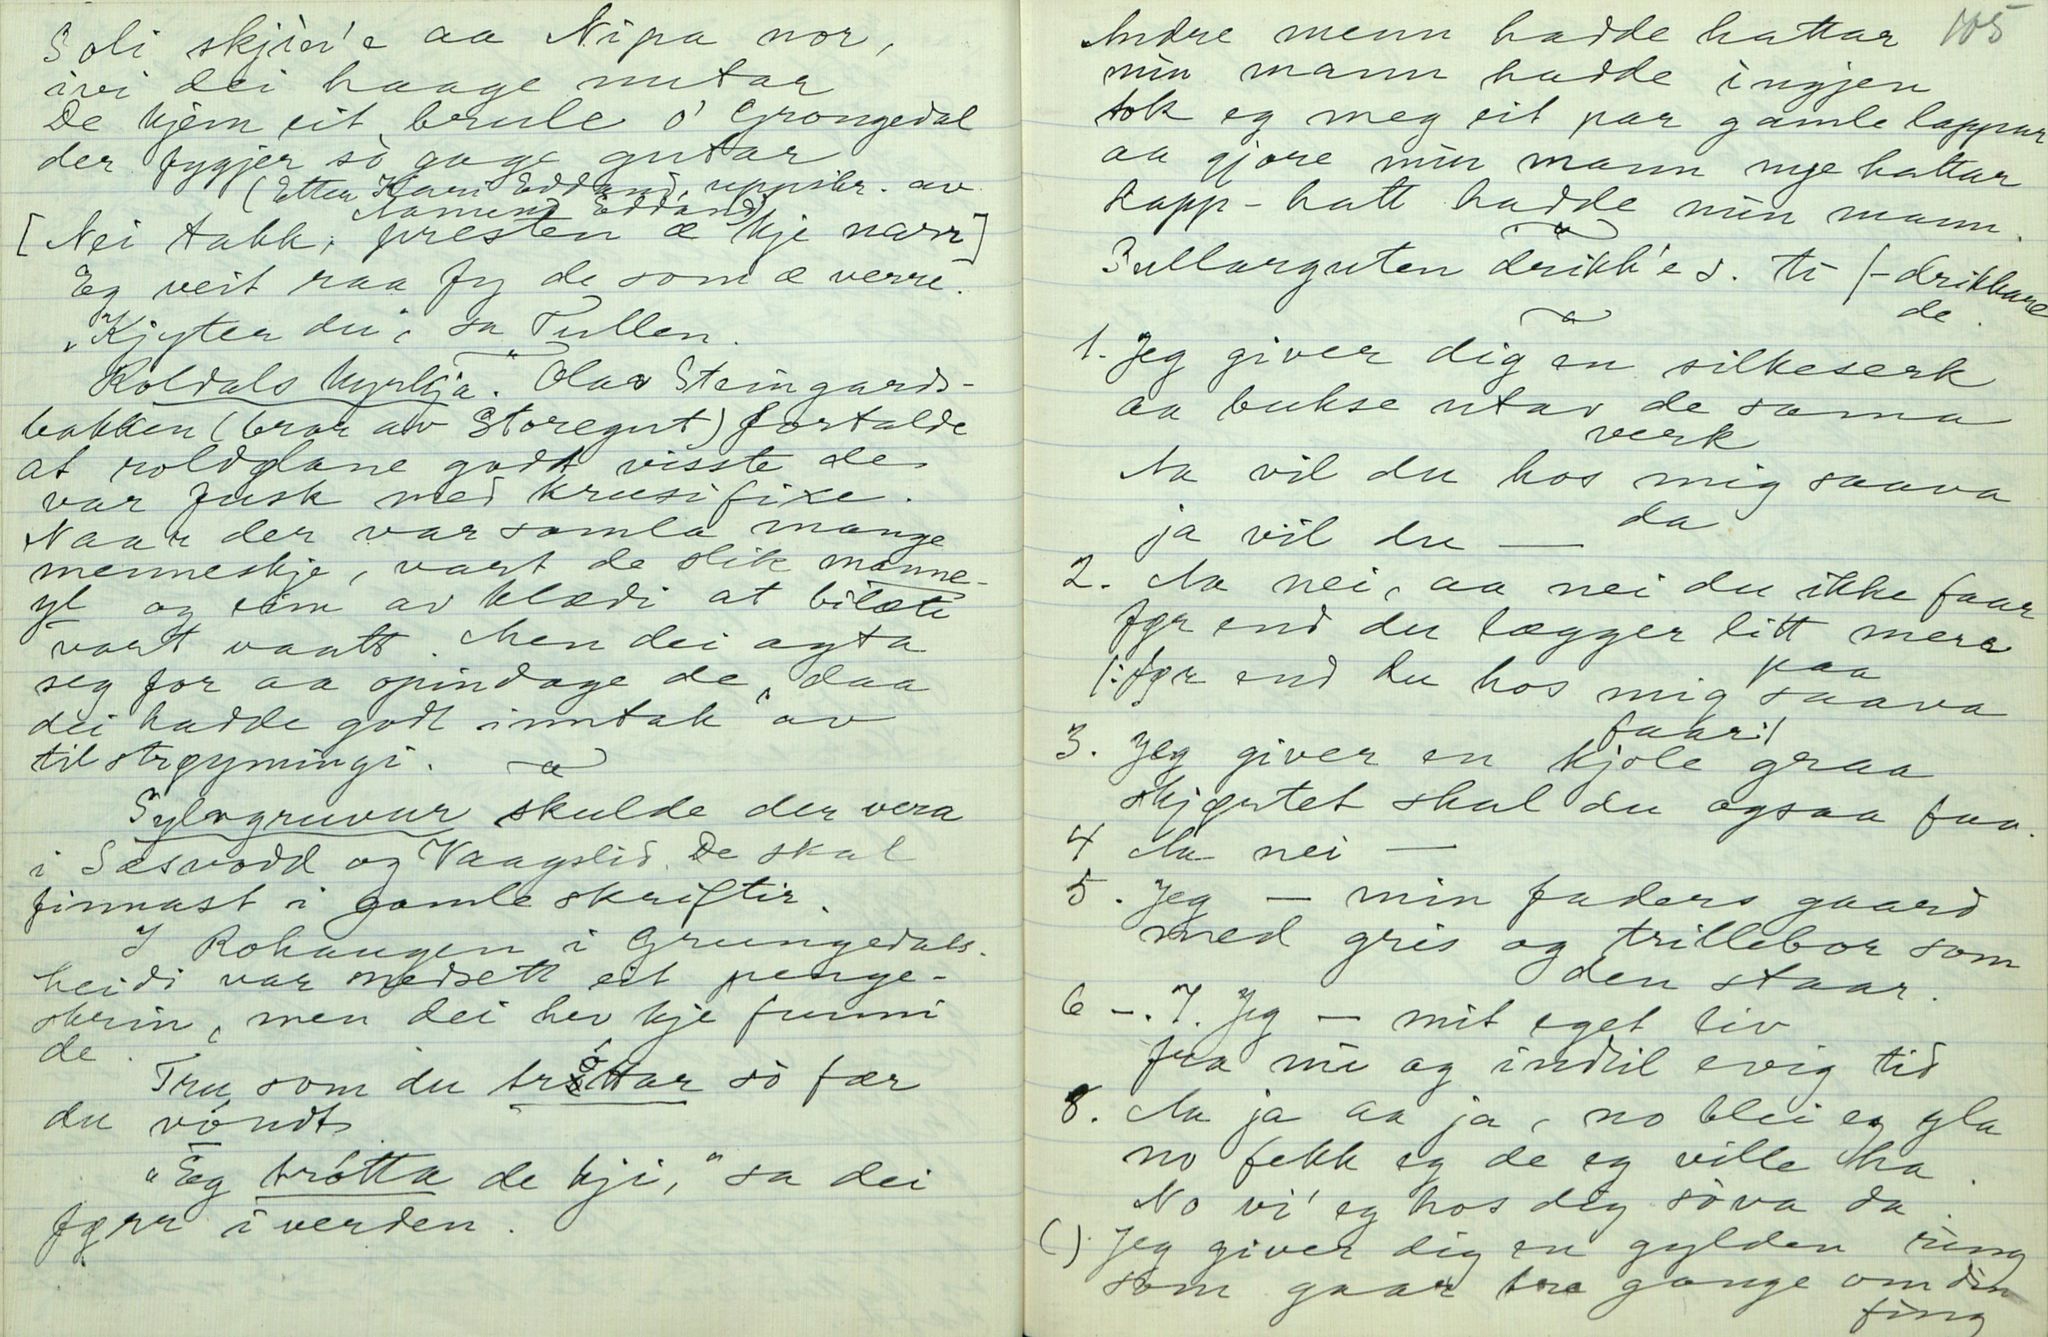 Soli skjin'e aa Nipa nor,
ivi dei haage nutar
De kjem eit brule o' Grongedal
der fygjer sò gage gutar
(Etter Kari Eddand, uppskr. av
Aamund Eddand)
[Nei takk, presten æ kje narr]
Eg veit raa fy de som æ verre.
"Kjyter du", sa Tullen.
Roldals kyrkja. Olav Steingards-
bakken (bror av Storegut) fortalde
at roldølane godt visste de
var fusk med krusifixe.
Naar der var samla mange
menneskje, vart de slik manne-
yl og eim av klædi at bilæte
vart vaatt. Men dei agta
seg for aa opindage de, daa
dei hadde godt inntak av
tilstrøymingi.
Sylvgruvur skulde der vera
i Sæsvodd og Vaagslid. De skal
finnast i gamle skriftir.
I Rohaugen i Grungedals-
heidi var nedsett eit penge-
skrin, men dei hev kje funni
de.
Tru, som du tróttar sò fær
du vondt
"Eg trótta de kji," sa dei
fyrr i verden.
105
Andre menn hadde hattar
min mann hadde ingjen
tok eg meg eit par gamle lappar
aa gjore min mann nye hattar
Lapp-hatt hadde min mann.
Bullarguten drikk'e s. ti (-drikkare
de.
1. Jeg giver dig en silkeserk
aa bukse utav de sama
verk
Aa vil du hos mig saava
da
ja vil du —
2. Aa nei, aa nei du ikke faar
før end du lægger litt mere
paa
/: før end du hos mig saava
faar :/
3. Jeg giver en kjole graa
skjørtet skal du ogsaa faa.
4 Aa nei —
5. Jeg — min faders gaard
med gris og trillebor som
den staar.
6 —. 7. Jeg — mit eget liv
fra nu og indtil evig tid
8. Aa ja aa ja, no blei eg gla
no fekk eg de eg ville ha.
No vi' eg hos dig sòva da.
( ) Jeg giver dig en gylden ring
som gaar tre gange om din
fing